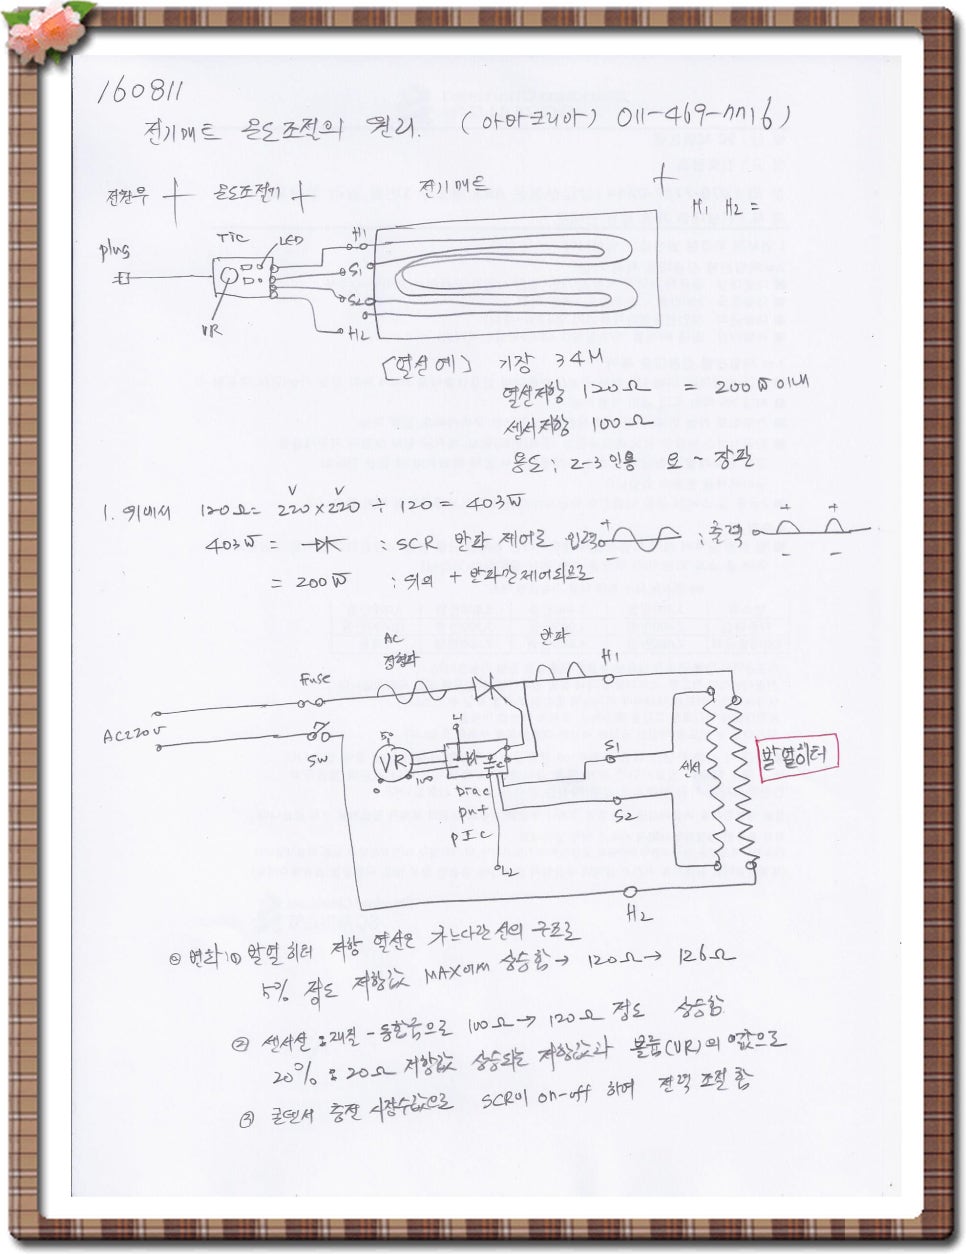 160811
전기매트 온도조절의 원리. (아마코리아) 011-469-7716)
전원부 온도조절기 전기매트
H1 H2 =
plug TIC LED H1
S1
S2
VR H2
[열선 예] 기장 34M
열선저항 120Ω = 200W 이내
센서저항 100Ω
용도: 2-3인용 요 ~ 장판
1. 위에서 120Ω = 220V × 220V ÷ 120 = 403W
403W = : SCR 반파 제어로 입력 + - ; 출력 + - + -
= 200W : 위의 + 반파만 제어되므로
AC 정형파 반파
Fuse H1
AC220V
SW VR 50 0 100 S1 센서 발열히터
Diac
put
PIC
S2
L2
H2
변화 ① 발열히터 저항 열선은 가느다란 선의 구조로
5% 정도 저항값 MAX에서 상승함 → 120Ω → 126Ω
② 센서선 : 재질 - 동합금으로 100Ω → 120Ω 정도 상승함
20% : 20Ω 저항값 상승되는 저항값과 볼륨(VR)의 값으로
③ 콘덴서 충전 시정수값으로 SCR이 on-off 하여 전력 조절함